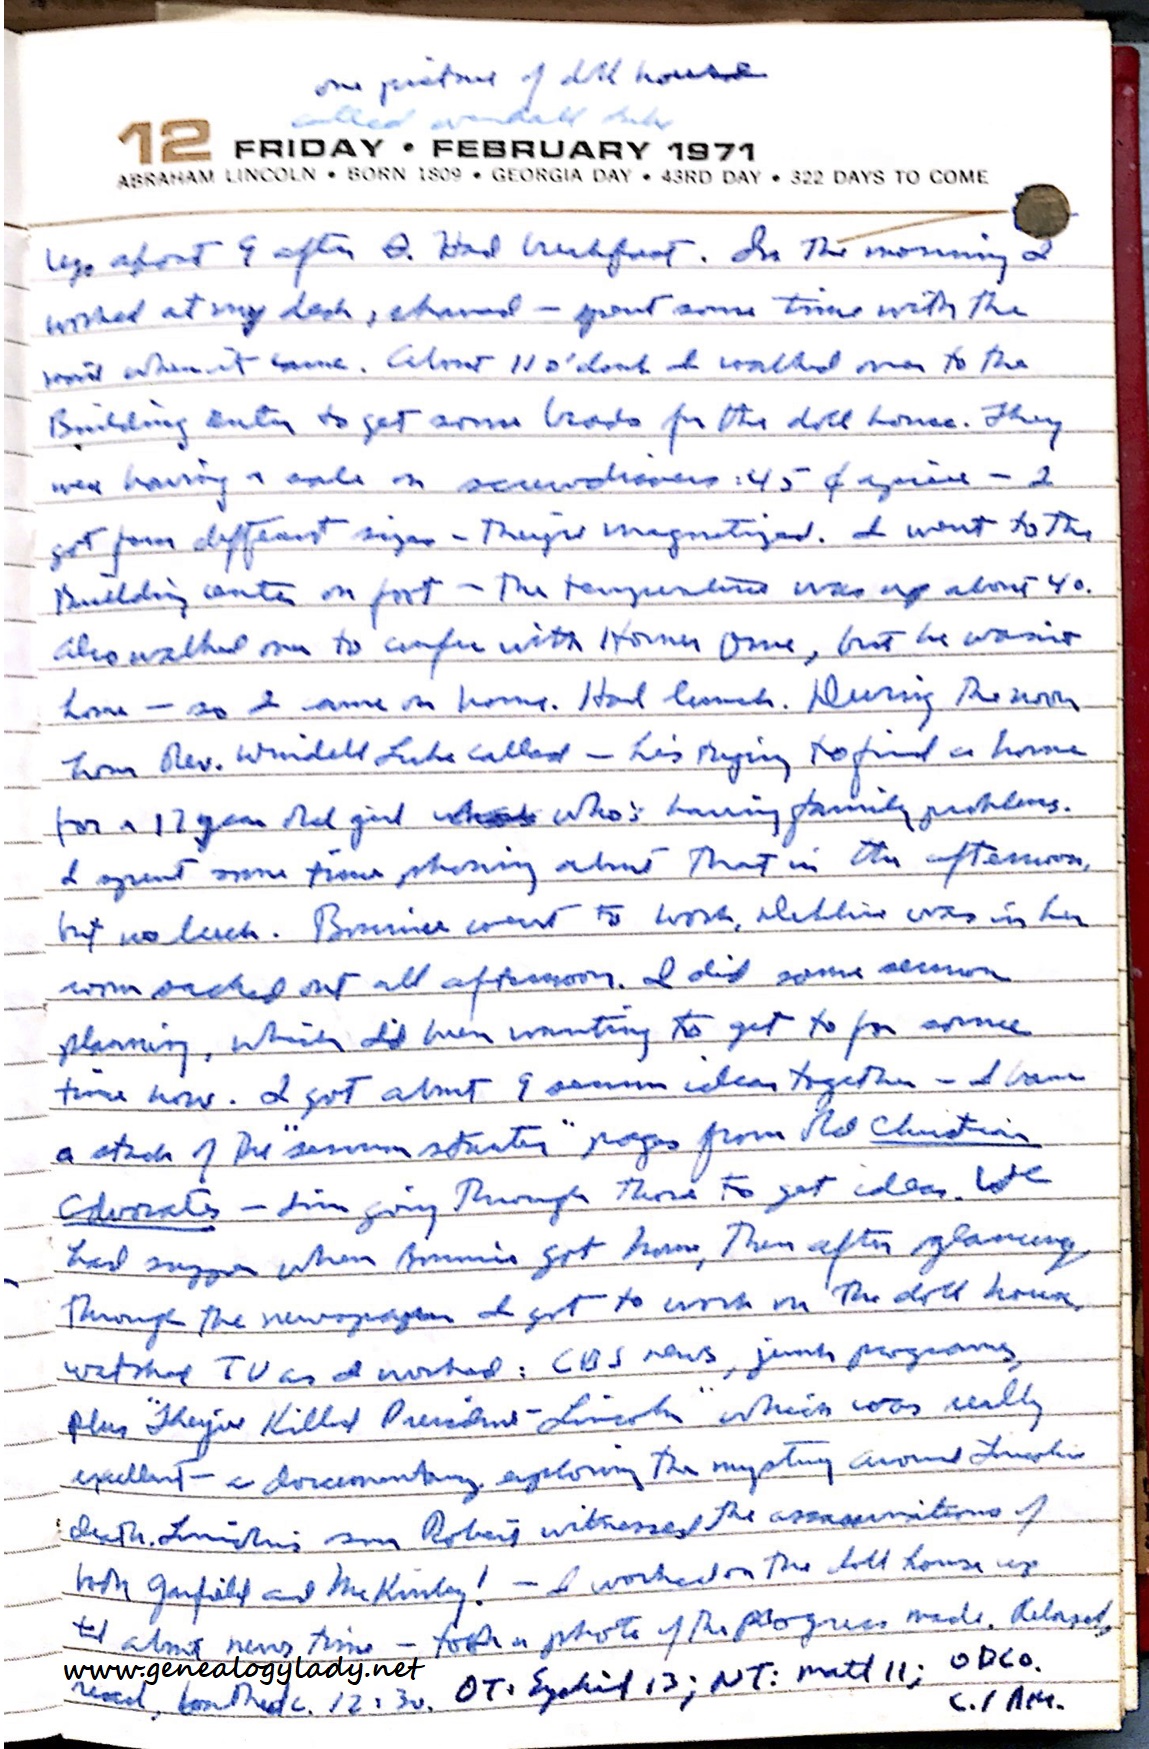 one picture of doll house
called Wendell Luke
12 FRIDAY • FEBRUARY 1971
ABRAHAM LINCOLN • BORN 1809 • GEORGIA DAY • 43RD DAY • 322 DAYS TO COME
Up about 9 after 8. Had breakfast. In the morning I
worked at my desk, shaved – spent some time with the
mail when it came. About 11 o'clock I walked over to the
Building center to get some brads for the doll house. They
were having a sale on screwdrivers: 45 ¢ apiece – I
got four different sizes – they're magnetized. I went to the
Building center on foot – the temperature was up about 40.
Also walked over to confer with Homer, but he wasn't
home – so I came on home. Had lunch. During the noon
hour Rev. Windell Luke called – he's trying to find a home
for a 17 year old girl who's having family problems.
I spent some time phoning about that in the afternoon,
but no luck. Bonnie went to work, Debbie was in her
room sacked out all afternoon. I did some sermon
planning, which I'd been wanting to get to for some
time now. I got about 9 sermon ideas together – I have
a stack of the "sermon starter" pages from old Christian
Advocates – I'm going through those to get ideas. We
had supper when Bonnie got home, then after glancing
through the newspaper I got to work on the doll house,
watched TV as I worked: CBS news, junk programs,
plus "They've Killed President Lincoln" which was really
excellent – a documentary exploring the mystery around Lincoln's
death. Lincoln's son Robert witnessed the assassinations of
both Garfield and McKinley! – I worked on the doll house up
til about news time – took a photo of the progress made. Relaxed,
www.genealogylady.net
read, bathed c. 12:30. OT: Ezekiel 13; NT: Matt 11; ODCO.
c. 1 AM.